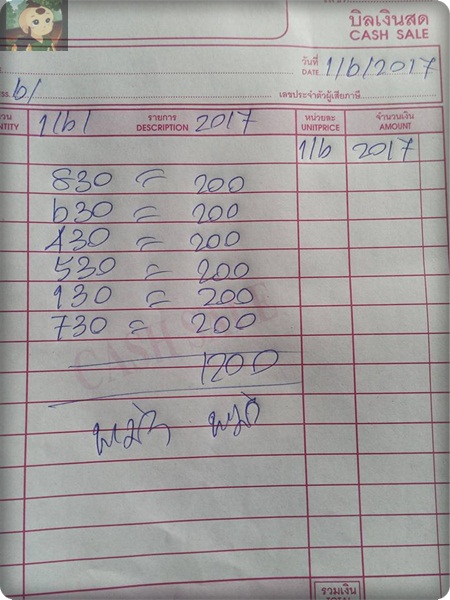 บิลเงินสด
CASH SALE
วันที่
DATE 1/6/2017
SS. 6/
เลขประจำตัวผู้เสียภาษี
รายการ หน่วยละ จำนวนเงิน
NTITY 1/6/ DESCRIPTION 2017 UNITPRICE AMOUNT
1/6 2017
830 = 200
630 = 200
430 = 200
530 = 200
130 = 200
730 = 200
CASH SALE
1200
รวมเงิน
TOTAL